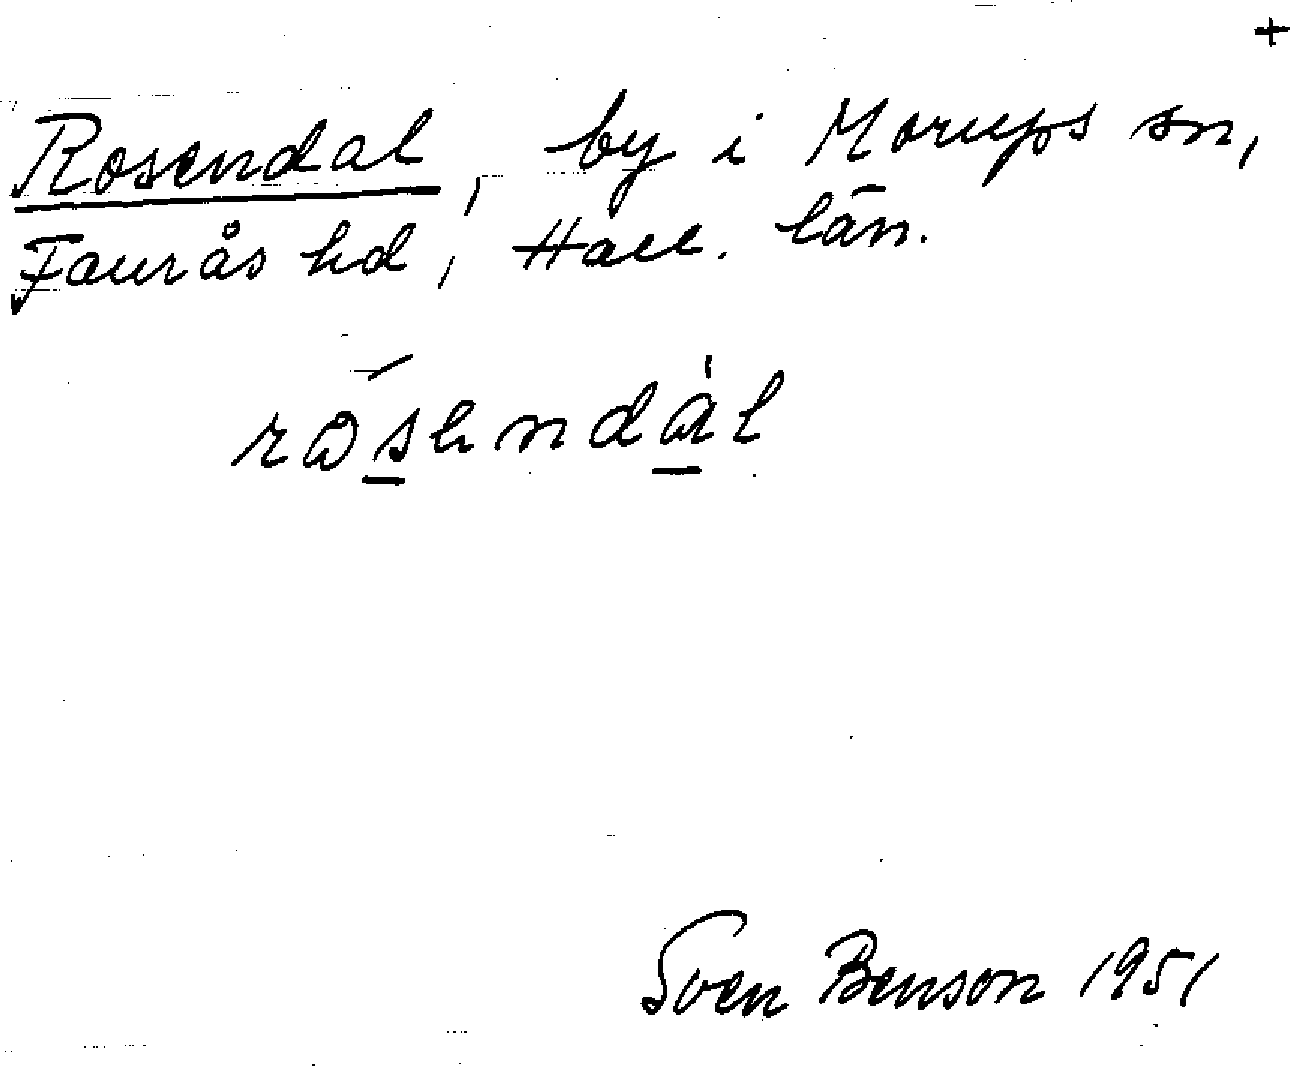 +
Rosendal, by i Morups sn,
Faurås hd, Hall. län.
Sven Benson 1951